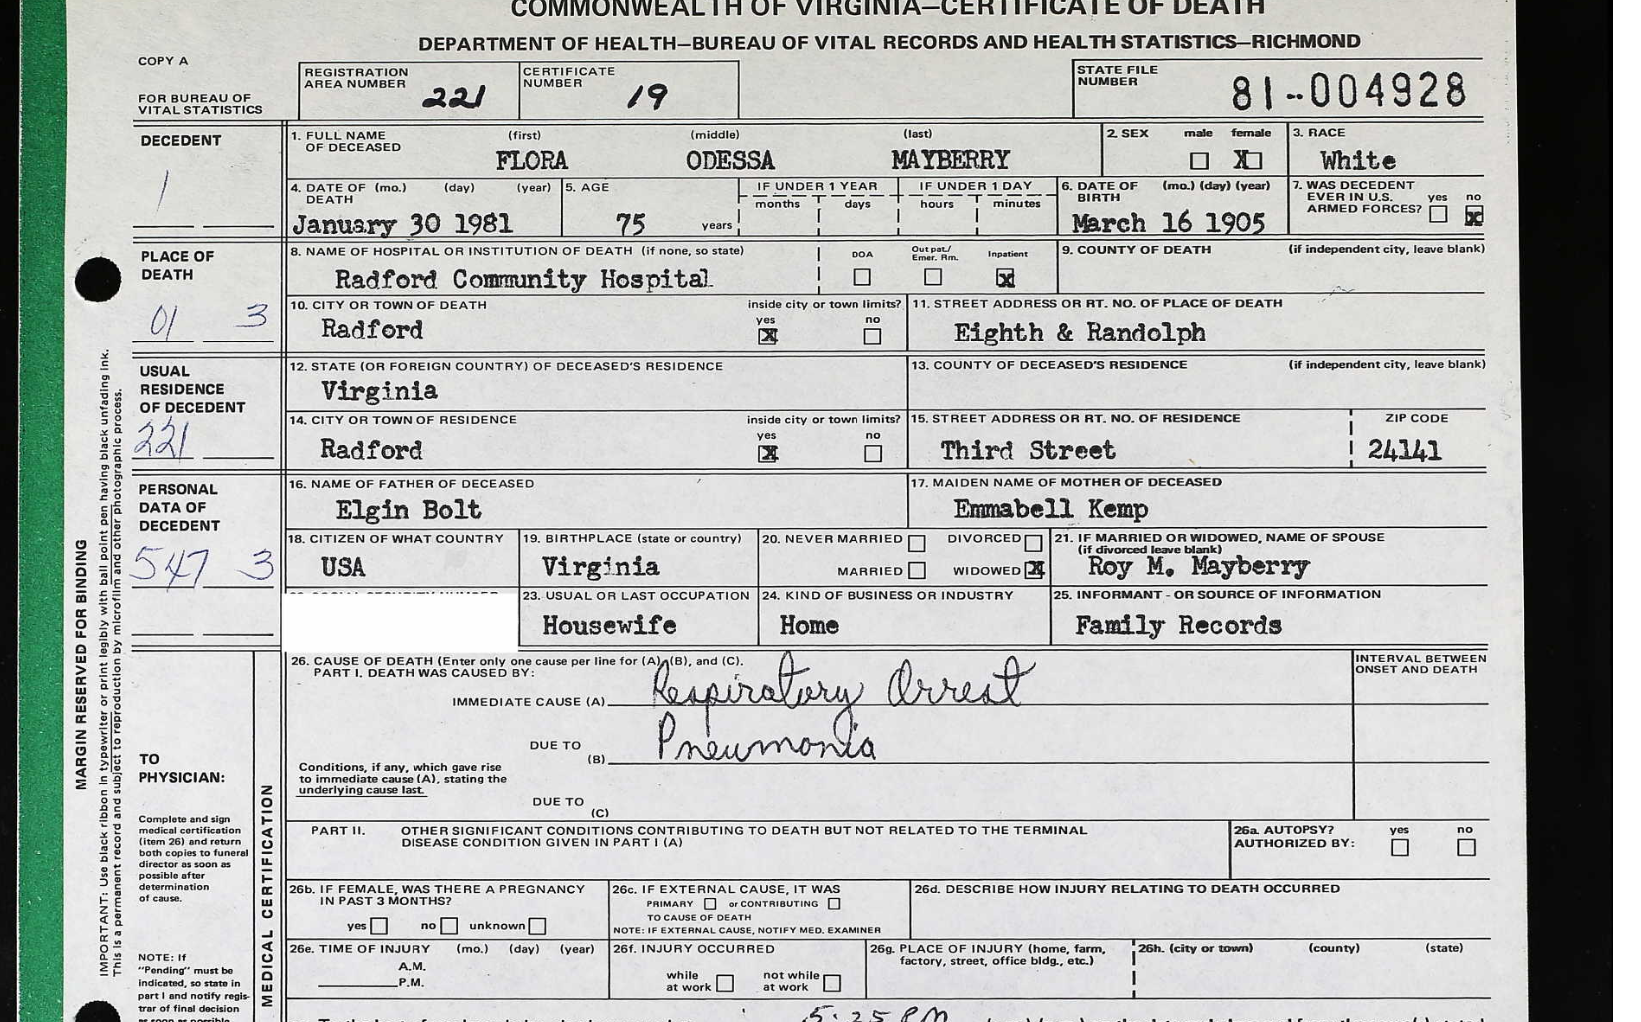 COMMONWEALTH OF VIRGINIA—CERTIFICATE OF DEATH
DEPARTMENT OF HEALTH—BUREAU OF VITAL RECORDS AND HEALTH STATISTICS—RICHMOND
COPY A
FOR BUREAU OF
VITAL STATISTICS
REGISTRATION
AREA NUMBER 221
CERTIFICATE
NUMBER 19
STATE FILE
NUMBER 81-004928
DECEDENT
1
1. FULL NAME (first) (middle) (last)
OF DECEASED
FLORA ODESSA MAYBERRY
2. SEX male female
X
3. RACE
White
4. DATE OF (mo.) (day) (year)
DEATH
January 30 1981
5. AGE
75 years
IF UNDER 1 YEAR
months days
IF UNDER 1 DAY
hours minutes
6. DATE OF (mo.) (day) (year)
BIRTH
March 16 1905
7. WAS DECEDENT
EVER IN U.S. yes no
ARMED FORCES? X
PLACE OF
DEATH
01 3
8. NAME OF HOSPITAL OR INSTITUTION OF DEATH (if none, so state)
Radford Community Hospital
DOA Out pat./ Inpatient
Emer. Rm.
X
9. COUNTY OF DEATH (if independent city, leave blank)
10. CITY OR TOWN OF DEATH inside city or town limits?
yes no
Radford X
11. STREET ADDRESS OR RT. NO. OF PLACE OF DEATH
Eighth & Randolph
USUAL
RESIDENCE
OF DECEDENT
221
12. STATE (OR FOREIGN COUNTRY) OF DECEASED'S RESIDENCE
Virginia
13. COUNTY OF DECEASED'S RESIDENCE (if independent city, leave blank)
14. CITY OR TOWN OF RESIDENCE inside city or town limits?
yes no
Radford X
15. STREET ADDRESS OR RT. NO. OF RESIDENCE ZIP CODE
Third Street 24141
PERSONAL
DATA OF
DECEDENT
547 3
16. NAME OF FATHER OF DECEASED
Elgin Bolt
17. MAIDEN NAME OF MOTHER OF DECEASED
Emmabell Kemp
18. CITIZEN OF WHAT COUNTRY
USA
19. BIRTHPLACE (state or country)
Virginia
20. NEVER MARRIED DIVORCED
MARRIED WIDOWED X
21. IF MARRIED OR WIDOWED, NAME OF SPOUSE
(if divorced leave blank)
Roy M. Mayberry
23. USUAL OR LAST OCCUPATION
Housewife
24. KIND OF BUSINESS OR INDUSTRY
Home
25. INFORMANT - OR SOURCE OF INFORMATION
Family Records
MARGIN RESERVED FOR BINDING
IMPORTANT: Use black ribbon in typewriter or print legibly with ball point pen having black unfading ink.
This is a permanent record and subject to reproduction by microfilm and other photographic process.
TO
PHYSICIAN:
Complete and sign
medical certification
(item 26) and return
both copies to funeral
director as soon as
possible after
determination
of cause.
NOTE: If
"Pending" must be
indicated, so state in
part I and notify regis-
trar of final decision
as soon as possible
MEDICAL CERTIFICATION
26. CAUSE OF DEATH (Enter only one cause per line for (A), (B), and (C).
PART I. DEATH WAS CAUSED BY:
IMMEDIATE CAUSE (A) Respiratory Arrest
DUE TO
(B) Pneumonia
Conditions, if any, which gave rise
to immediate cause (A), stating the
underlying cause last.
DUE TO
(C)
INTERVAL BETWEEN
ONSET AND DEATH
PART II. OTHER SIGNIFICANT CONDITIONS CONTRIBUTING TO DEATH BUT NOT RELATED TO THE TERMINAL
DISEASE CONDITION GIVEN IN PART I (A)
26a. AUTOPSY? yes no
AUTHORIZED BY:
26b. IF FEMALE, WAS THERE A PREGNANCY
IN PAST 3 MONTHS?
yes no unknown
26c. IF EXTERNAL CAUSE, IT WAS
PRIMARY or CONTRIBUTING
TO CAUSE OF DEATH
NOTE: IF EXTERNAL CAUSE, NOTIFY MED. EXAMINER
26d. DESCRIBE HOW INJURY RELATING TO DEATH OCCURRED
26e. TIME OF INJURY (mo.) (day) (year)
A.M.
P.M.
26f. INJURY OCCURRED
while not while
at work at work
26g. PLACE OF INJURY (home, farm,
factory, street, office bldg., etc.)
26h. (city or town) (county) (state)
5:25 PM